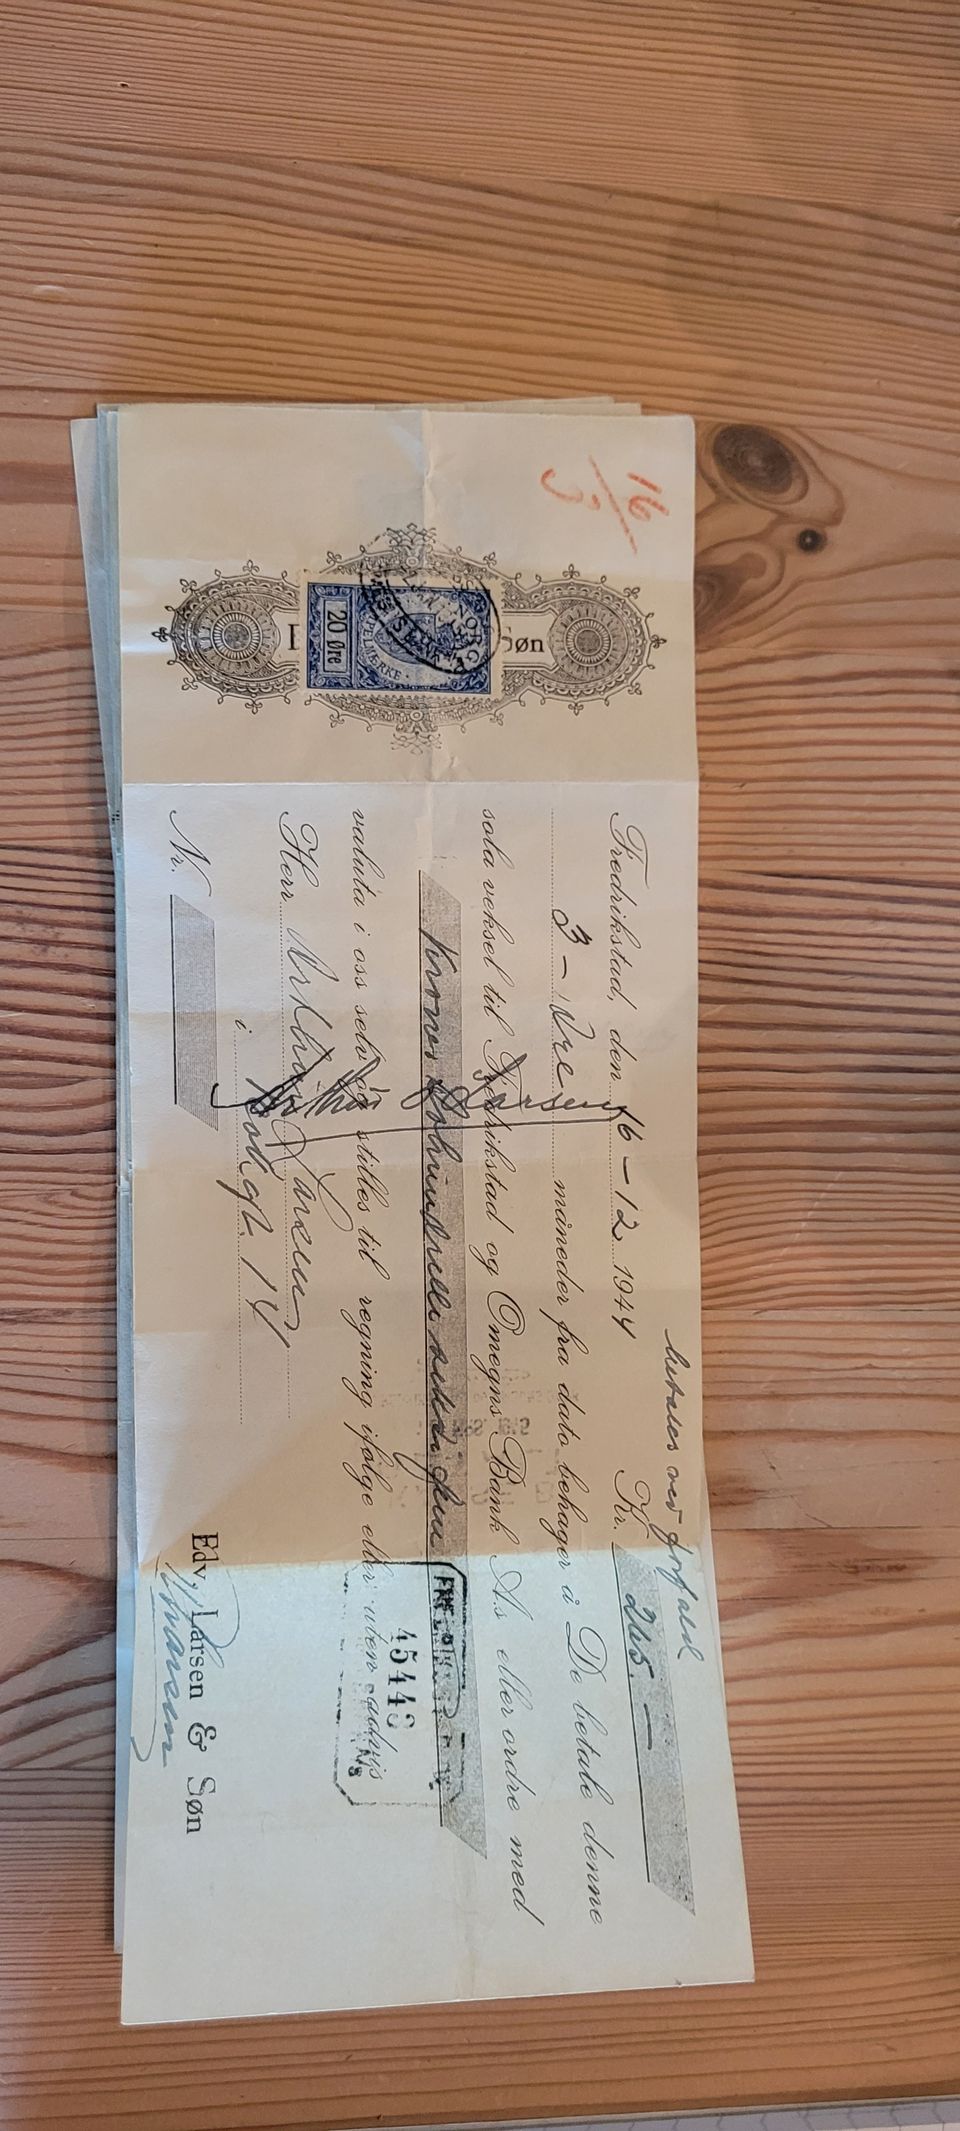 16/3
Søn
NORGES
STEMPELMERKE.
20 Øre
betales ved forfald
Fredrikstad, den 16 - 12 1944 Kr. 265 -
3 - tre måneder fra dato behager å De betale denne
sola veksel til Fredrikstad og Omegns Bank A.s eller ordre med
Kroner tohundrede
valuta i oss selv og stilles til regning ifølge eller uten advis
45443
Arthur Larsen
Herr Arthur Larsen
i 14
Nr.
Edv. Larsen & Søn